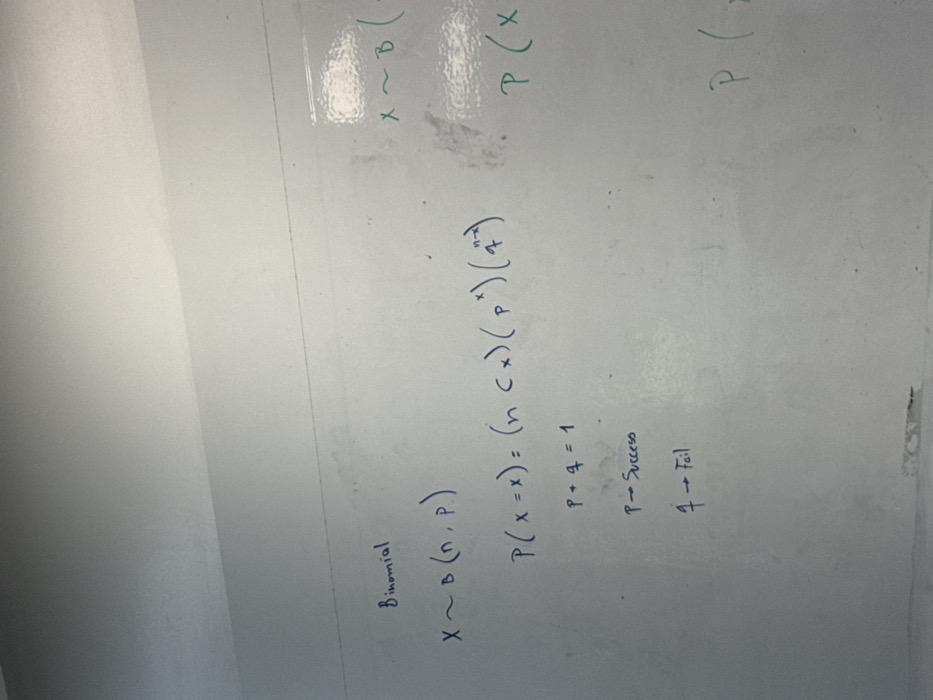 Binomial
X ~ B(n, p)
P(X = x) = (n C x)(p^x)(q^n-x)
p + q = 1
p → Success
q → Fail
X ~ B(
P(X
P(